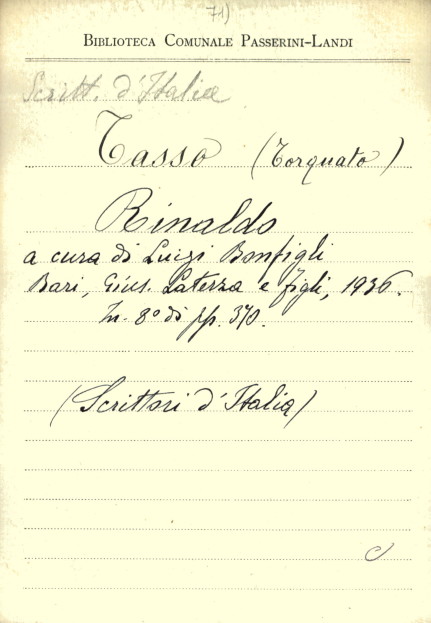 71)
BIBLIOTECA COMUNALE PASSERINI-LANDI
Scritt. d'Italia
Tasso (Torquato)
Rinaldo
a cura di Luigi Bonfigli
Bari, Gius. Laterza e figli, 1936.
In-8º di pp. 370.
(Scrittori d'Italia)
C